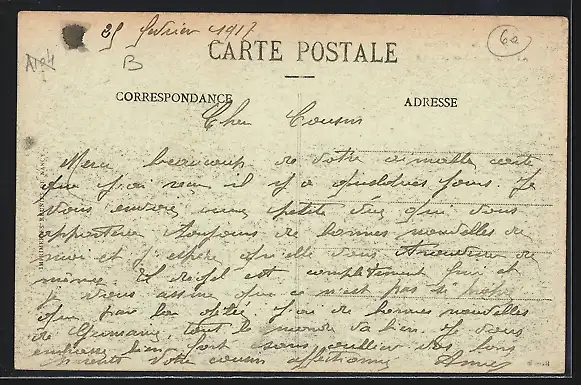 25 février 1917
60
B
CARTE POSTALE
CORRESPONDANCE
ADRESSE
Cher Cousin
Merci beaucoup de votre aimable carte
que j'ai reçu il y a quelques jours. Je
vous envoie une petite qui vous
apportera toujours de bonnes nouvelles de
moi et j'espère qu'elle vous trouvera de
même. Et est complètement fini et
je vous assure que ce n'est pas
que par ici. J'ai de bonnes nouvelles
de Germaine, tout le monde va bien. Je vous
embrasse bien fort sans oublier vos bons
parents Votre cousin affectionné